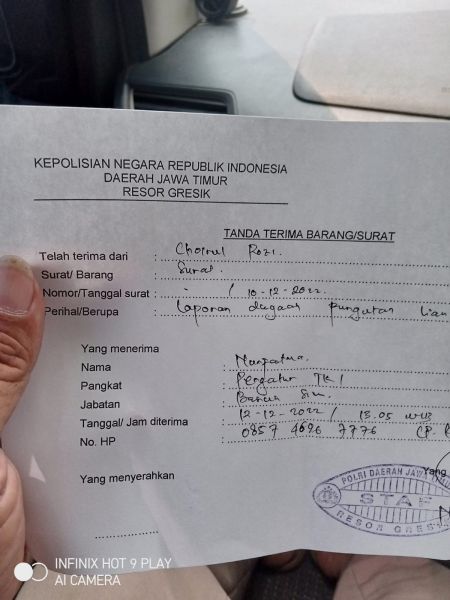 KEPOLISIAN NEGARA REPUBLIK INDONESIA
DAERAH JAWA TIMUR
RESOR GRESIK
TANDA TERIMA BARANG/SURAT
Telah terima dari : Choirul Rozi.
Surat/ Barang : Surat.
Nomor/Tanggal surat : - / 10-12-2022
Perihal/Berupa : Laporan dugaan pungutan lian
Yang menerima
Nama :
Pangkat : TK I
Jabatan :
Tanggal/ Jam diterima : 12-12-2022 / 13.05 WIB
No. HP : 0857 4696 7776
Yang menyerahkan
Yang
POLRI DAERAH JAWA TIMU
STAF
RESOR GRES
INFINIX HOT 9 PLAY
AI CAMERA